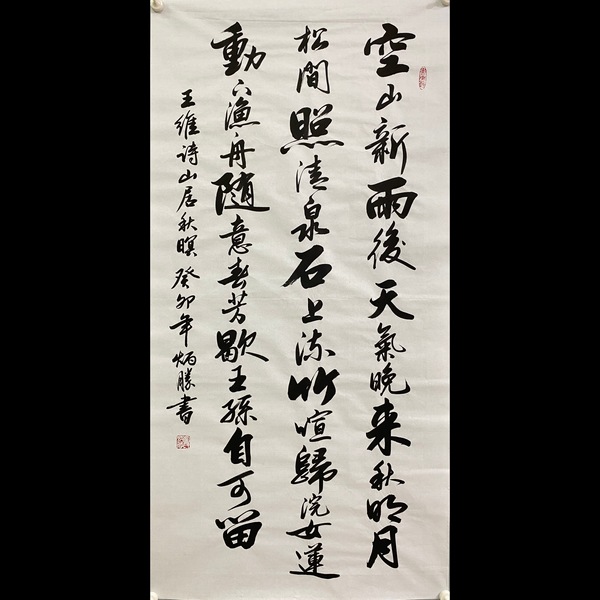 空山新雨後天氣晚来秋明月
松間照清泉石上流竹喧歸浣女蓮
動下漁舟随意春芳歇王孫自可留
王維詩山居秋暝癸卯年炳勝書